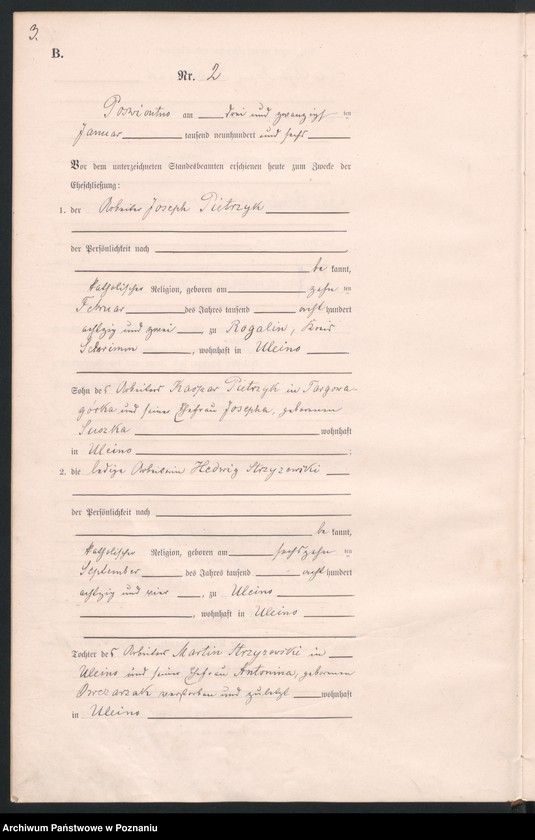 3.
B.
Nr. 2
am drei und zwanzigsten
Januar tausend neunhundert und sechs
Vor dem unterzeichneten Standesbeamten erschienen heute zum Zwecke der
Eheschließung:
1. der Arbeiter Joseph Pietrzyk
der Persönlichkeit nach
be kannt,
katholischer Religion, geboren am zehn ten
Februar des Jahres tausend acht hundert
achtzig und zwei zu Rogalin, Kreis
Schrimm, wohnhaft in Uleino
Sohn des Arbeiters Kaspar Pietrzyk in Targowa-
górka und seiner Ehefrau Josepha, geborenen
Suszka wohnhaft
in Uleino ;
2. die ledige Arbeiterin Hedwig Strzyzewski
der Persönlichkeit nach
be kannt,
katholischer Religion, geboren am sechszehn ten
September des Jahres tausend acht hundert
achtzig und vier, zu Uleino
, wohnhaft in Uleino
Tochter des Arbeiters Martin Strzyzewski in
Uleino und seiner Ehefrau Antonina, geborenen
verstorben und zuletzt wohnhaft
in Uleino
Archiwum Państwowe w Poznaniu